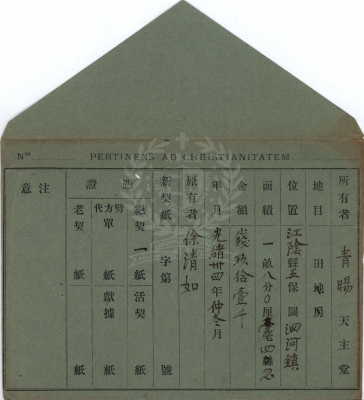 Nº
PERTINENS AD CHRISTIANITATEM
所有者 青暘 天主堂
地目 田地房
位置 江陰縣五保 圖 泗河鎮
面積 一畝八分0厘毫四絲忽
金額 錢玖拾壹千
年月 光緒卅四年仲冬月
原有者 徐清如
新契紙 字第 號
憑證
絕契 一 紙 活契 紙
代方單 紙 獻據 紙
老契 紙 紙
注意